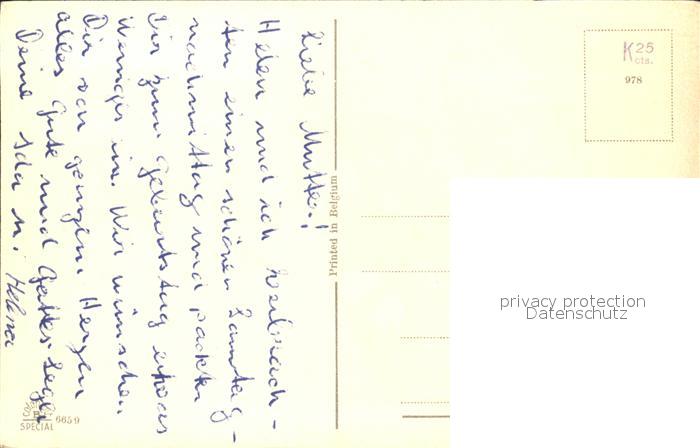 Liebe Mutter!
Helen und ich verbrach-
ten einen schönen Samstag-
nachmittag und packten
Dir zum Geburtstag etwas
Weniges ein. Wir wünschen
Dir von ganzem Herzen
alles Gute und Gottes Segen
Deine Ida u. Helene
Printed in Belgium
K 25
cts.
978
privacy protection
Datenschutz
SPECIAL
6659